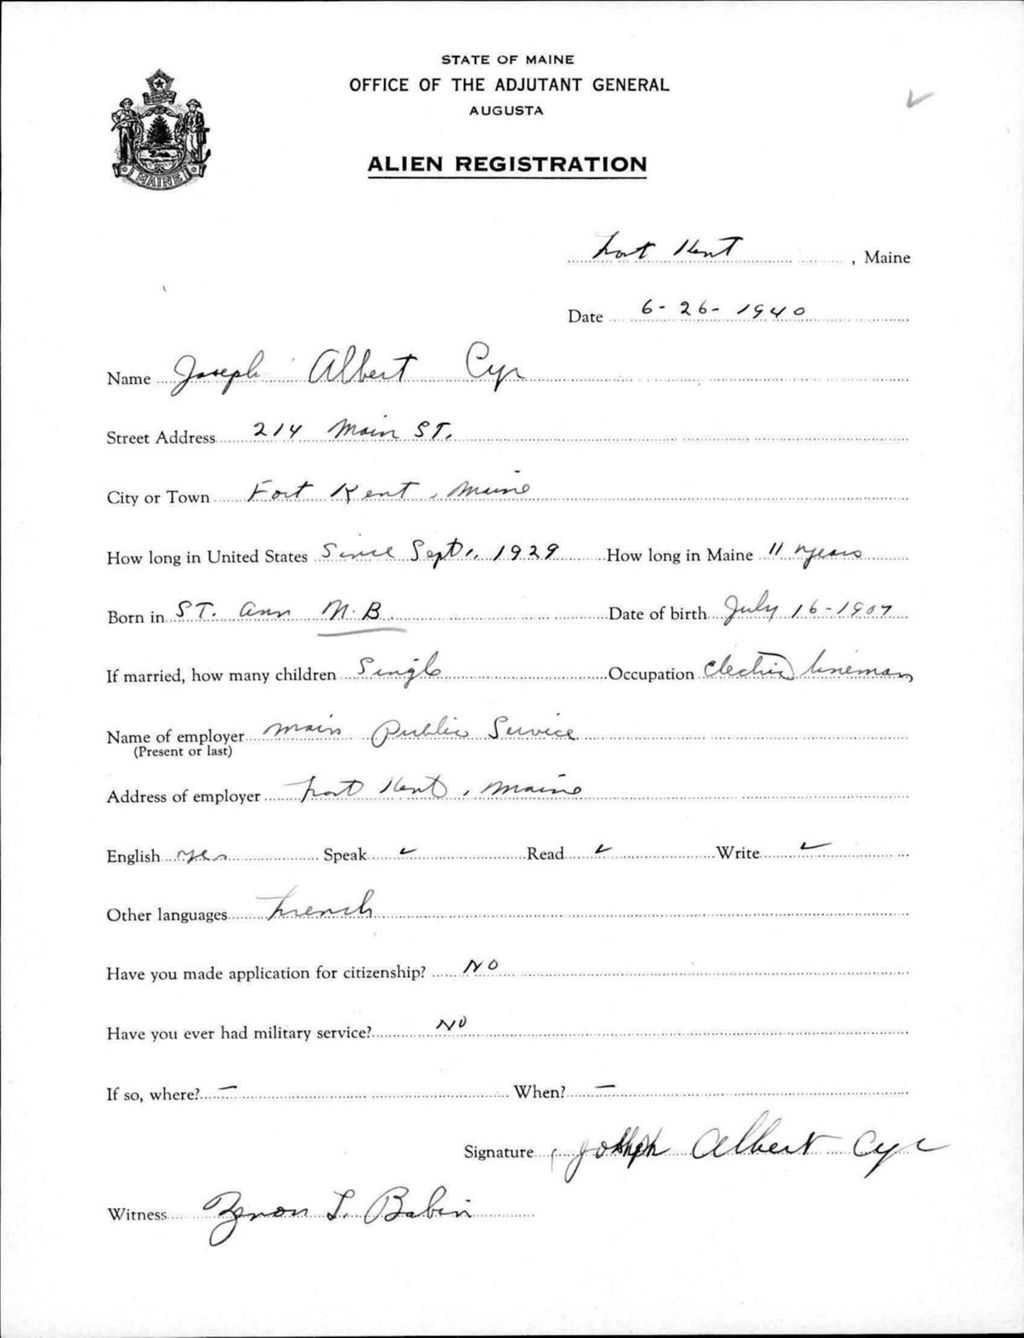 STATE OF MAINE
OFFICE OF THE ADJUTANT GENERAL
AUGUSTA
ALIEN REGISTRATION
MAINE
Fort Kent, Maine
Date 6-26-1940
Name Joseph Albert Cyr
Street Address 214 Main ST.
City or Town Fort Kent, Maine
How long in United States Since Sept., 1929 How long in Maine 11 years
Born in ST. Ann N.B. Date of birth July 16-1907
If married, how many children Single Occupation Electric lineman
Name of employer Main Public Service
(Present or last)
Address of employer Fort Kent, Maine
English yes Speak ✓ Read ✓ Write ✓
Other languages French
Have you made application for citizenship? NO
Have you ever had military service? NO
If so, where? — When? —
Signature Joseph Albert Cyr
Witness Zenon L. Babin